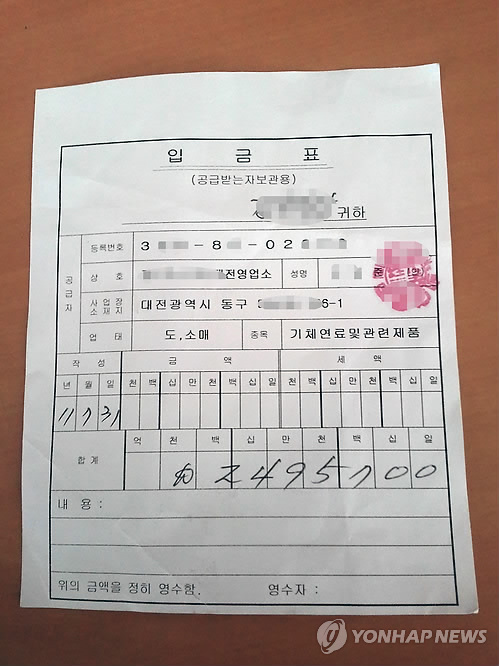 입 금 표
(공급받는자보관용)
귀하
공급자
등록번호 3 -8 -02
상호 전영업소 성명
사업장소재지 대전광역시 동구 6-1
업태 도,소매 종목 기체연료및관련제품
작성 금액 세액
년 월 일 천 백 십 만 천 백 십 일 천 백 십 만 천 백 십 일
11 7 31
합계 억 천 백 십 만 천 백 십 일
₩ 2495700
내용 :
위의 금액을 정히 영수함. 영수자 :
YONHAP NEWS